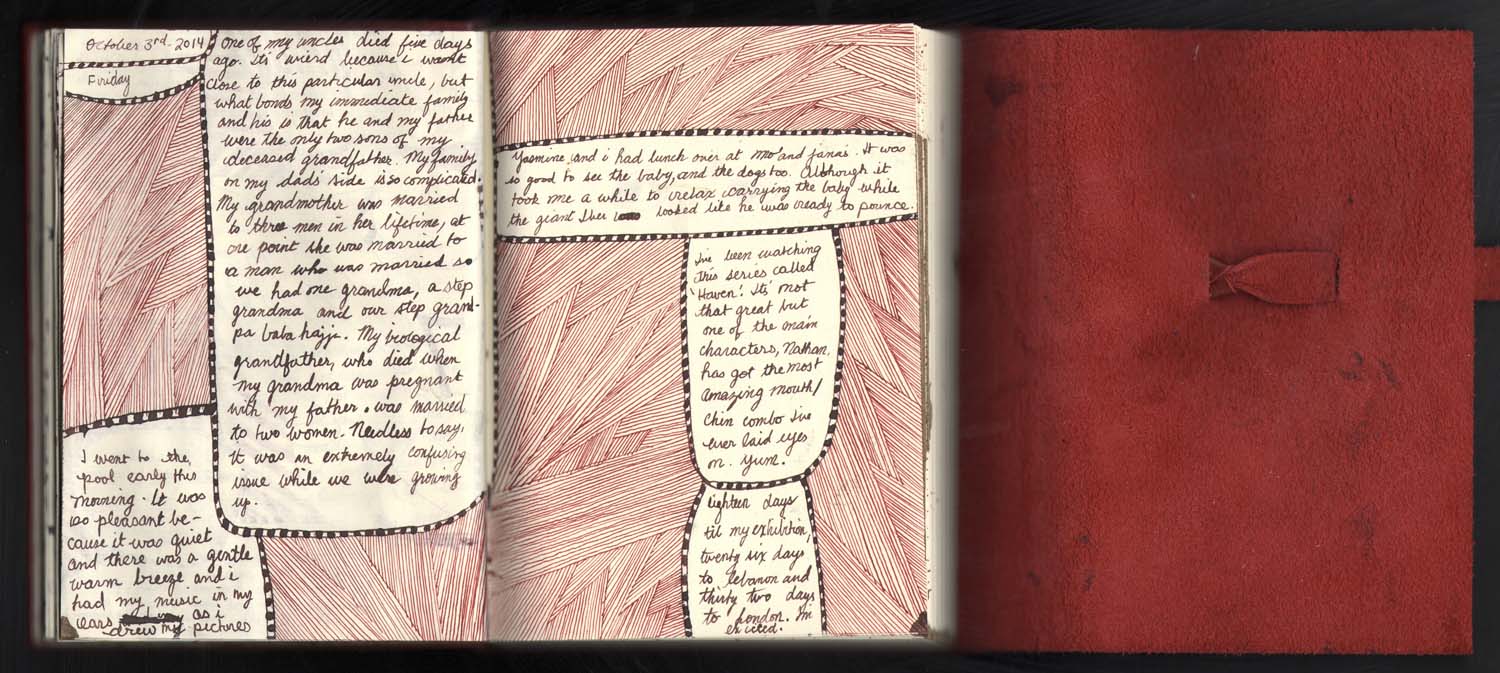 October 3rd. 2014
Friday
One of my uncles died five days
ago. Its wierd because i wasnt
close to this particular uncle, but
what bonds my immediate family
and his is that he and my father
were the only two sons of my
deceased grandfather. My family
on my dads' side is so complicated.
My grandmother was married
to three men in her lifetime, at
one point she was married to
a man who was married so
we had one grandma, a step
grandma and our step grand-
pa baba hajji. My biological
grandfather, who died when
my grandma was pregnant
with my father. was married
to two women. Needless to say,
it was an extremely confusing
issue while we were growing
up.
I went to the
pool early this
morning. It was
so pleasant be-
cause it was quiet
and there was a gentle
warm breeze and i
had my music in my
ears as i
drew my pictures
Yasmine and i had lunch over at Mo' and Janas. It was
so good to see the baby, and the dogs too. Although it
took me a while to relax carrying the baby while
the giant Iber looked like he was ready to pounce.
I've been watching
this series called
'Haven'. Its' not
that great but
one of the main
characters, Nathan,
has got the most
amazing mouth/
chin combo I've
ever laid eyes
on. Yum.
Eighteen days
til my exhibition,
twenty six days
to lebanon and
thirty two days
to london. I'm
excited.